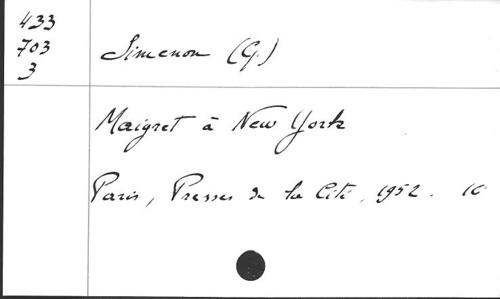 433
703
3
Simenon (G.)
Maigret à New York
Paris, Presses de la Cité, 1952.